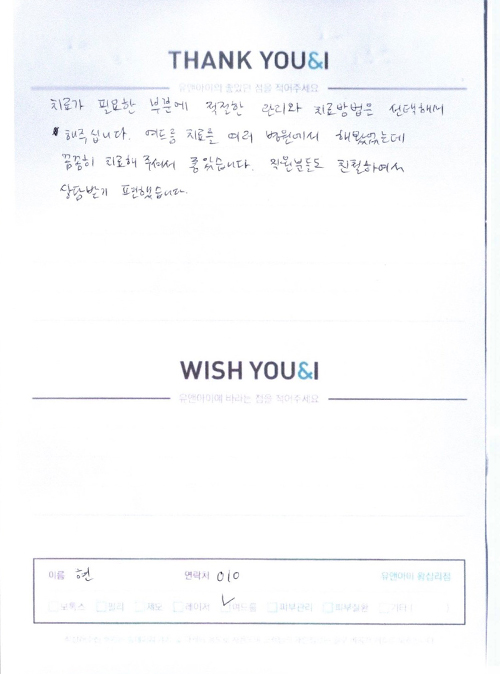 THANK YOU&I
유앤아이의 좋았던 점을 적어주세요
치료가 필요한 부분에 적절한 관리와 치료방법은 선택해서
해주십니다. 여드름 치료를 여러 병원에서 해봤었는데
꼼꼼히 치료해 주셔서 좋았습니다. 직원분들도 친절하여서
상담받기 편했습니다.
WISH YOU&I
유앤아이에 바라는 점을 적어주세요
이름 현 연락처 010 유앤아이 왕십리점
보톡스 필러 제모 레이저 여드름 피부관리 피부질환 기타 ( )